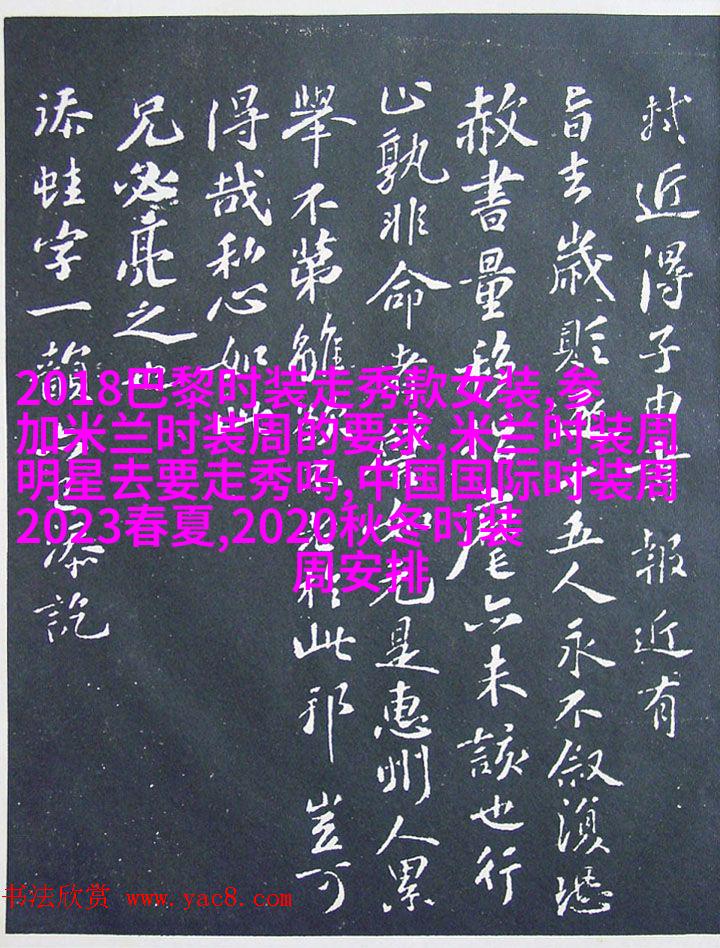 軾近得子由書報近有
旨去歲貶五人永不敘湏恐
赦書量移麾亦未該也行
止孰非命者先是惠州人累
舉不第雖於此邪豈可
得哉私心如此
兄必亮之
添蛙字一添訖
2018巴黎时装走秀款女装,参
加米兰时装周的要求,米兰时装周
明星去要走秀吗,中国国际时装周
2023春夏,2020秋冬时装
周安排
书法欣赏 www.yac8.com